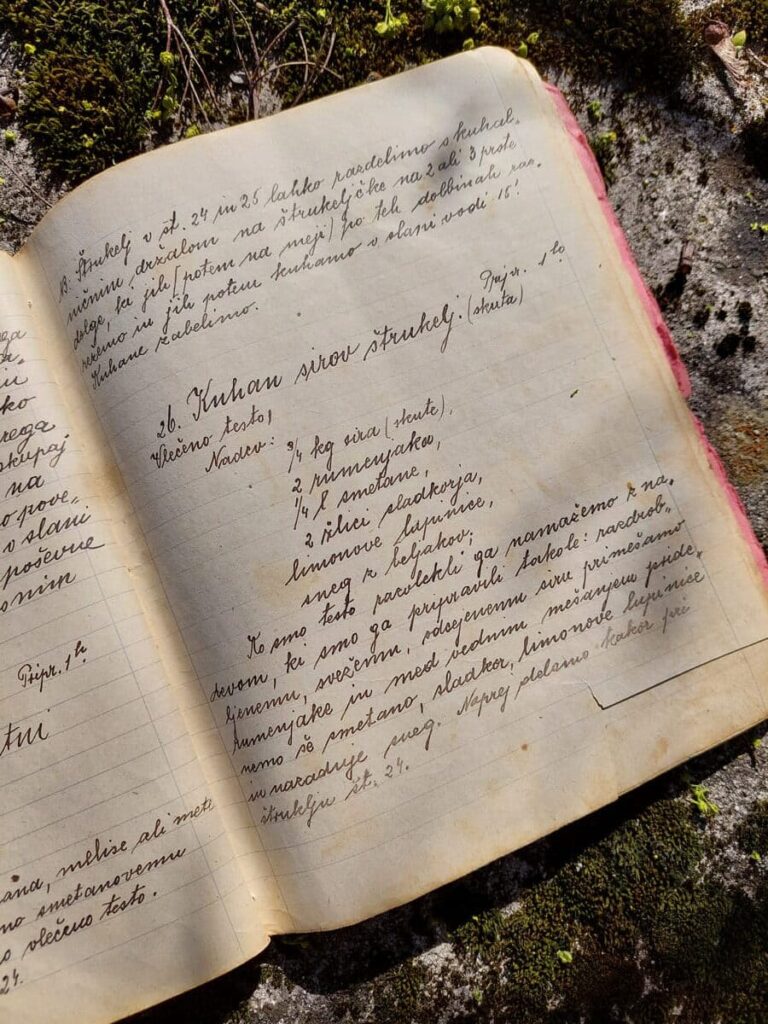 ega
ko
rega
skupaj
na
o pove-
v slani
poševne
osnim
Pripr. 1h.
tni
ana, melise ali mete
no smetanovemu
o vlečeno testo.
24.
B. Štrukelj v št. 24 in 25 lahko razdelimo s kuhal-
ničnim držalom na štrukeljčke na 2 ali 3 prste
dolge, ki jih (potem na meji) po teh dolbinah raz-
režemo in jih potem kuhamo v slani vodi 15'.
Kuhane zabelimo.
Pripr. 1 h
26. Kuhan sirov štrukelj. (skuta)
Vlečeno testo,
Nadev: 3/4 kg sira (skute),
2 rumenjakov,
1/4 l smetane,
2 žlici sladkorja,
limonove lupinice,
sneg z beljakov;
Ko smo testo razvlekli ga namažemo z na-
devom, ki smo ga pripravili takole: razdrob-
ljenemu, svežemu, odcejenemu siru primešamo
rumenjake in med vednim mešanjem pride-
nemo še smetano, sladkor, limonove lupinice
in nazadnje sneg. Naprej delamo kakor pri
štruklju št. 24.